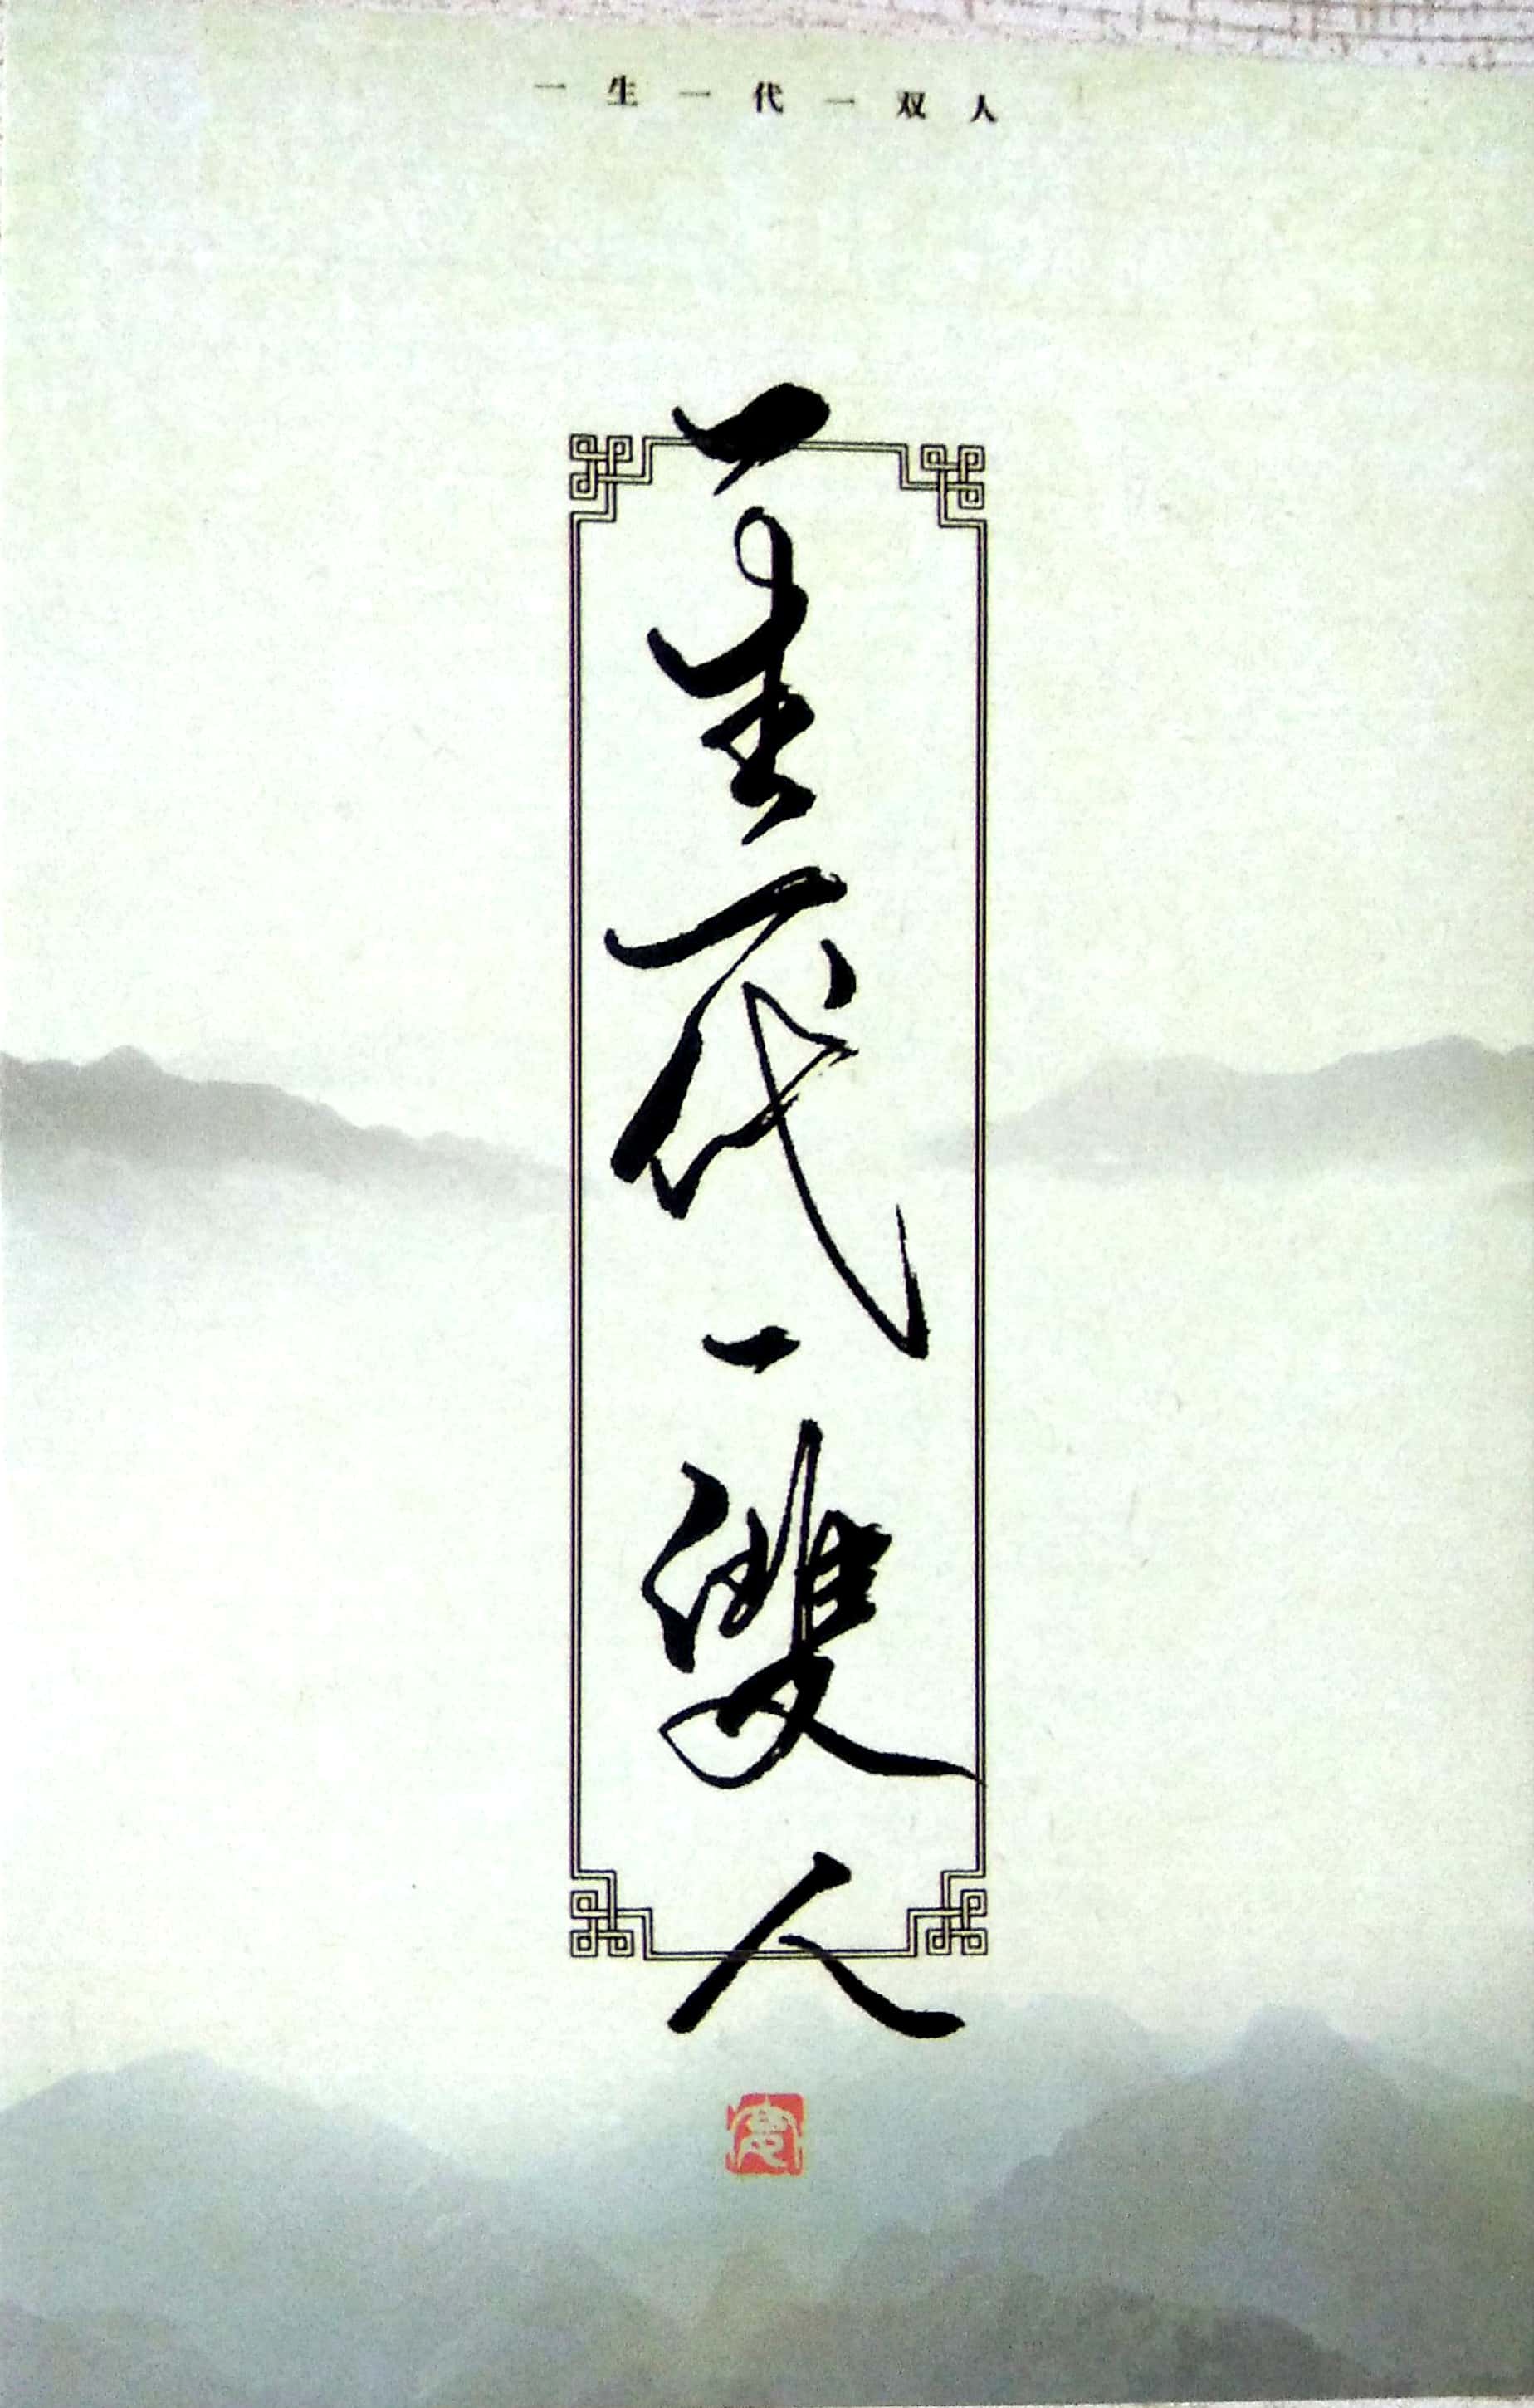 一生一代一双人
一生一代一雙人